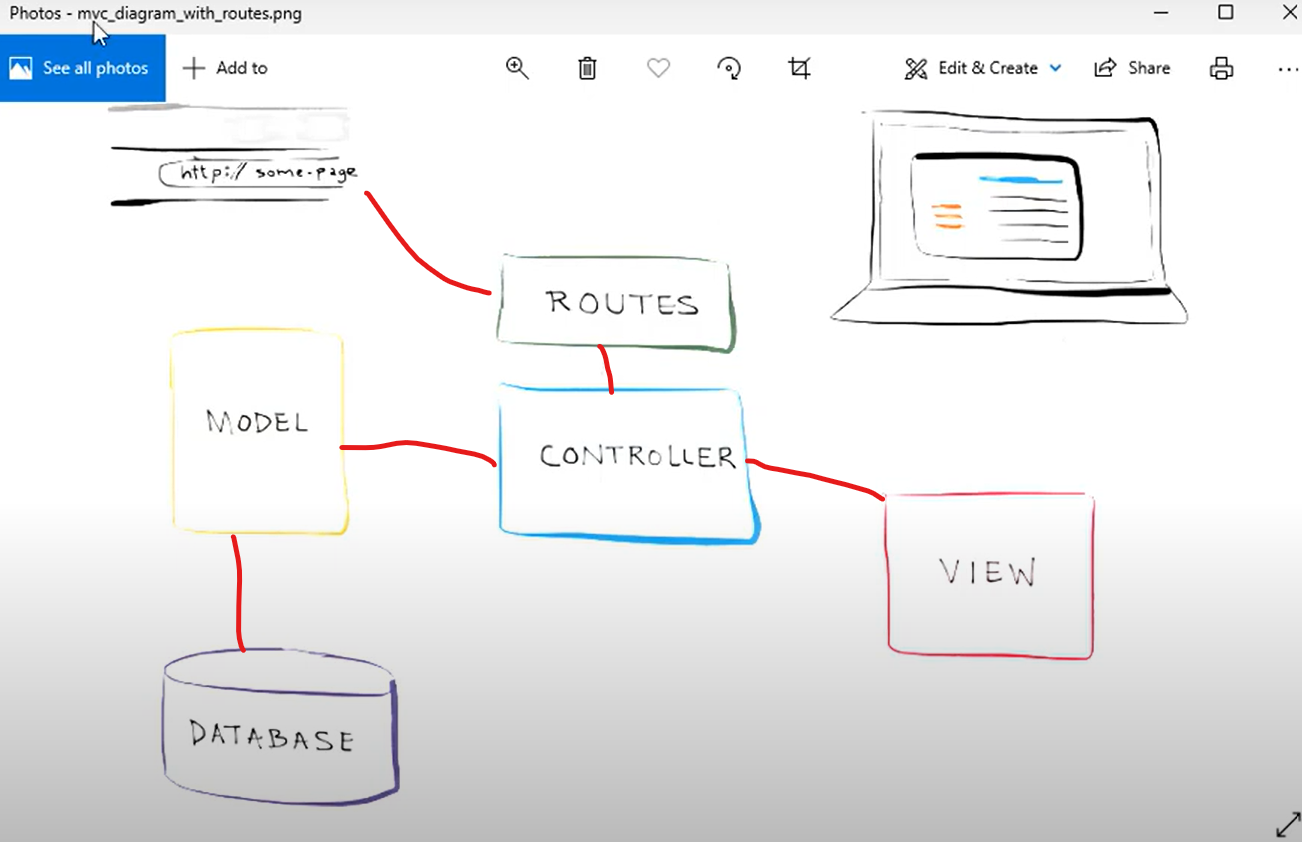 Photos - mvc_diagram_with_routes.png
See all photos
Add to
Edit & Create
Share
http:// some-page
ROUTES
MODEL
CONTROLLER
VIEW
DATABASE